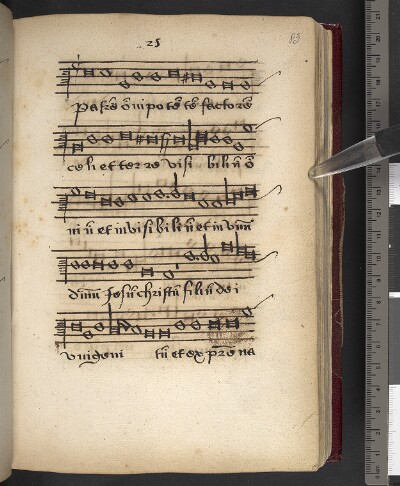 25
patrē ōnipotētē factorē
celi et terre visibiliū ō
niū et invisibiliū et in vnū
dnm̄ Jesū christū filiū dei
vnigenitū et ex patre na